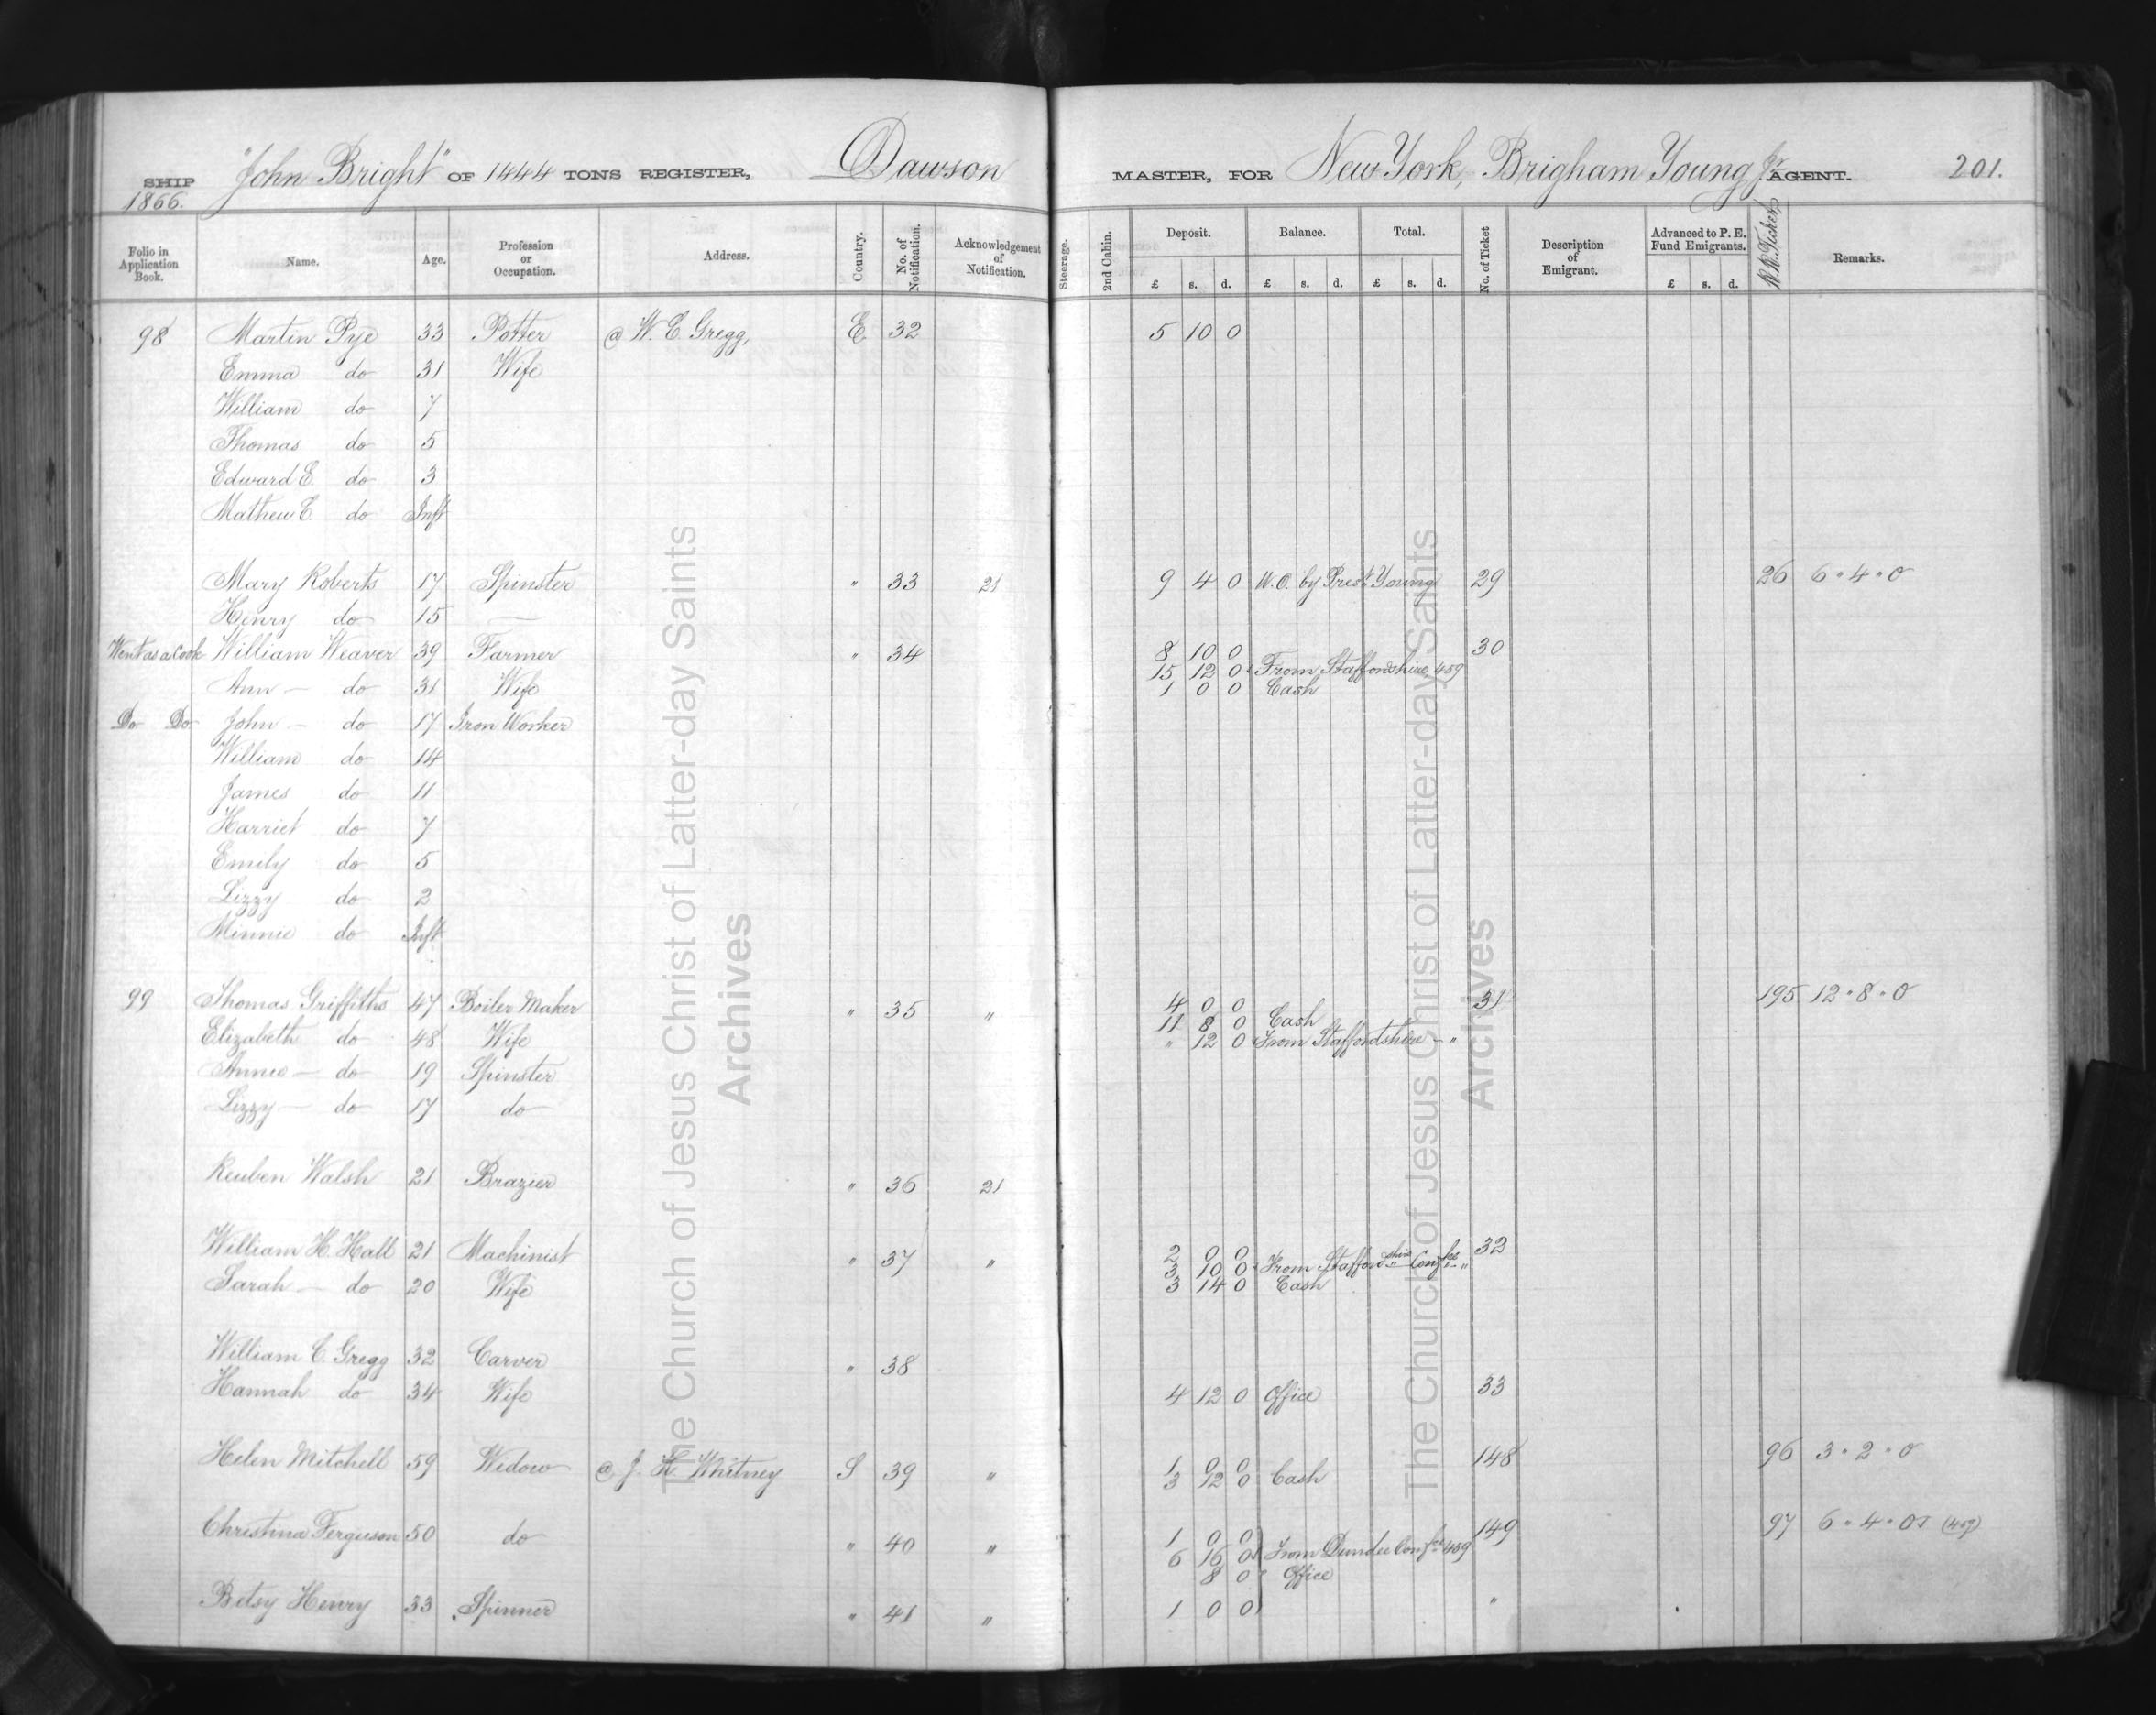 SHIP "John Bright" OF 1444 TONS REGISTER, Dawson MASTER, FOR New York, Brigham Young Jr AGENT. 201.
1866.
Folio in Application Book. Name. Age. Profession or Occupation. Address. Country. No. of Notification. Acknowledgement of Notification. Steerage. 2nd Cabin. Deposit. £ s. d. Balance. £ s. d. Total. £ s. d. No. of Ticket Description of Emigrant. Advanced to P. E. Fund Emigrants. £ s. d. R.R. Tickets Remarks.
98 Martin Pye 33 Potter @ W. C. Gregg, E 32 5 10 0
Emma do 31 Wife
William do 7
Thomas do 5
Edward E. do 3
Mathew E. do Inft
Mary Roberts 17 Spinster " 33 21 9 4 0 U.O. by Prest Young 29 26 6 " 4 " 0
Henry do 15 —
Went as a Cook William Weaver 39 Farmer " 34 8 10 0 30
15 12 0 From Staffordshire 459
Ann — do 31 Wife 1 0 0 Cash
Do Do John — do 17 Iron Worker
William do 14
James do 11
Harriet do 7
Emily do 5
Lizzy do 2
Minnie do Inft
99 Thomas Griffiths 47 Boiler Maker " 35 " 4 0 0 31 195 12 " 8 " 0
11 8 0 Cash
Elizabeth do 48 Wife " 12 0 From Staffordshire — "
Annie — do 19 Spinster
Lizzy — do 17 do
Reuben Walsh 21 Brazier " 36 21
William H. Hall 21 Machinist " 37 " 2 0 0 32
3 10 0 From Staffordshire Confce "
Sarah — do 20 Wife 3 14 0 Cash
William C. Gregg 32 Carver " 38
Hannah do 34 Wife 4 12 0 Office 33
Helen Mitchell 59 Widow @ J. K. Whitney S 39 " 1 0 0 148 96 3 " 2 " 0
3 12 0 Cash
Christina Ferguson 50 do " 40 " 1 0 0 149 97 6 " 4 " 0 (459)
6 16 0 From Dundee Confce 459
8 0 Office
Betsy Henry 33 Spinner " 41 " 1 0 0 "
The Church of Jesus Christ of Latter-day Saints
Archives
The Church of Jesus Christ of Latter-day Saints
Archives